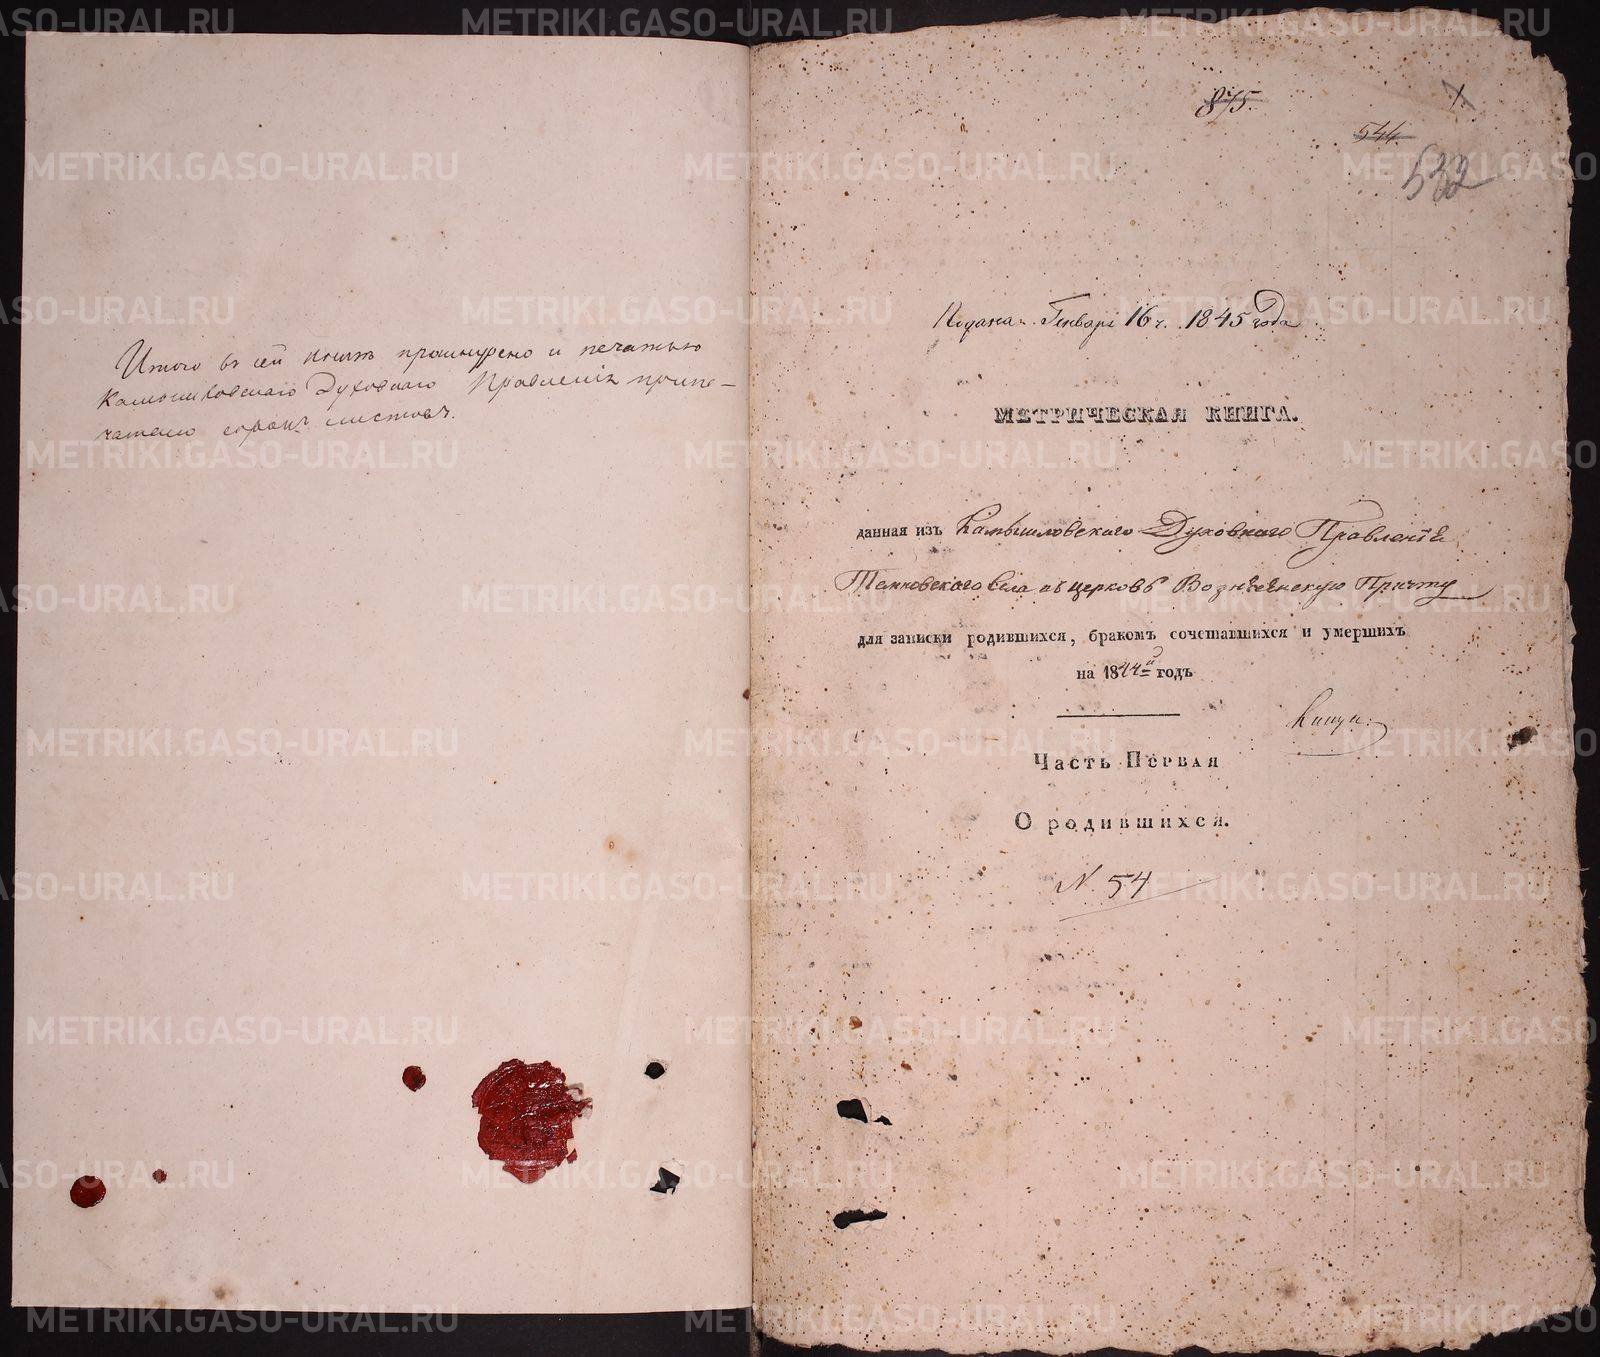 Итого въ сей книгѣ прошнурено и печатью
Камышловскаго Духовнаго Правленія припе-
чатано сорокъ листовъ.
875.
544.
532
Подана Генваря 16 ч. 1845 года
МЕТРИЧЕСКАЯ КНИГА.
данная изъ Камышловскаго Духовнаго Правленія
Темновского села въ церковь Вознесенскую Причту
для записки родившихся, бракомъ сочетавшихся и умершихъ
на 1844й годъ
Часть Первая
О родившихся.
N. 54
METRIKI.GASO-URAL.RU